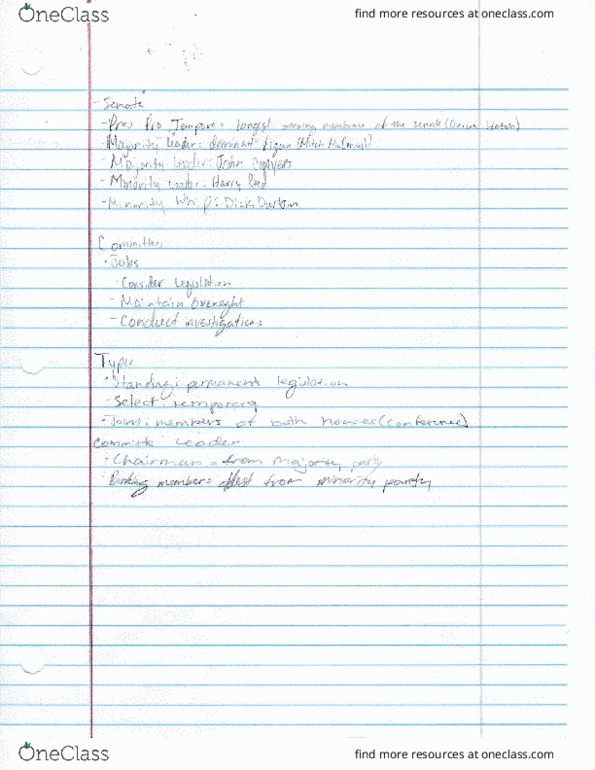 OneClass
find more resources at oneclass.com
- Senate
- Pres Pro Tempore: longest serving member of the senate (Orrin
- Majority Leader: dominant figure (Mitch
- Majority Leader: John
- Minority Leader: Harry Reed
- Minority Whip: Dick Durbin
Committees
• Jobs
- Consider legislation
- Maintain oversight
- Conduct investigations
Types
• Standing: permanent legislation
- Select: temporary
• Joint: members of both houses (conference)
Committee Leader
• Chairman - from majority party
• Ranking members from minority party
OneClass
find more resources at oneclass.com